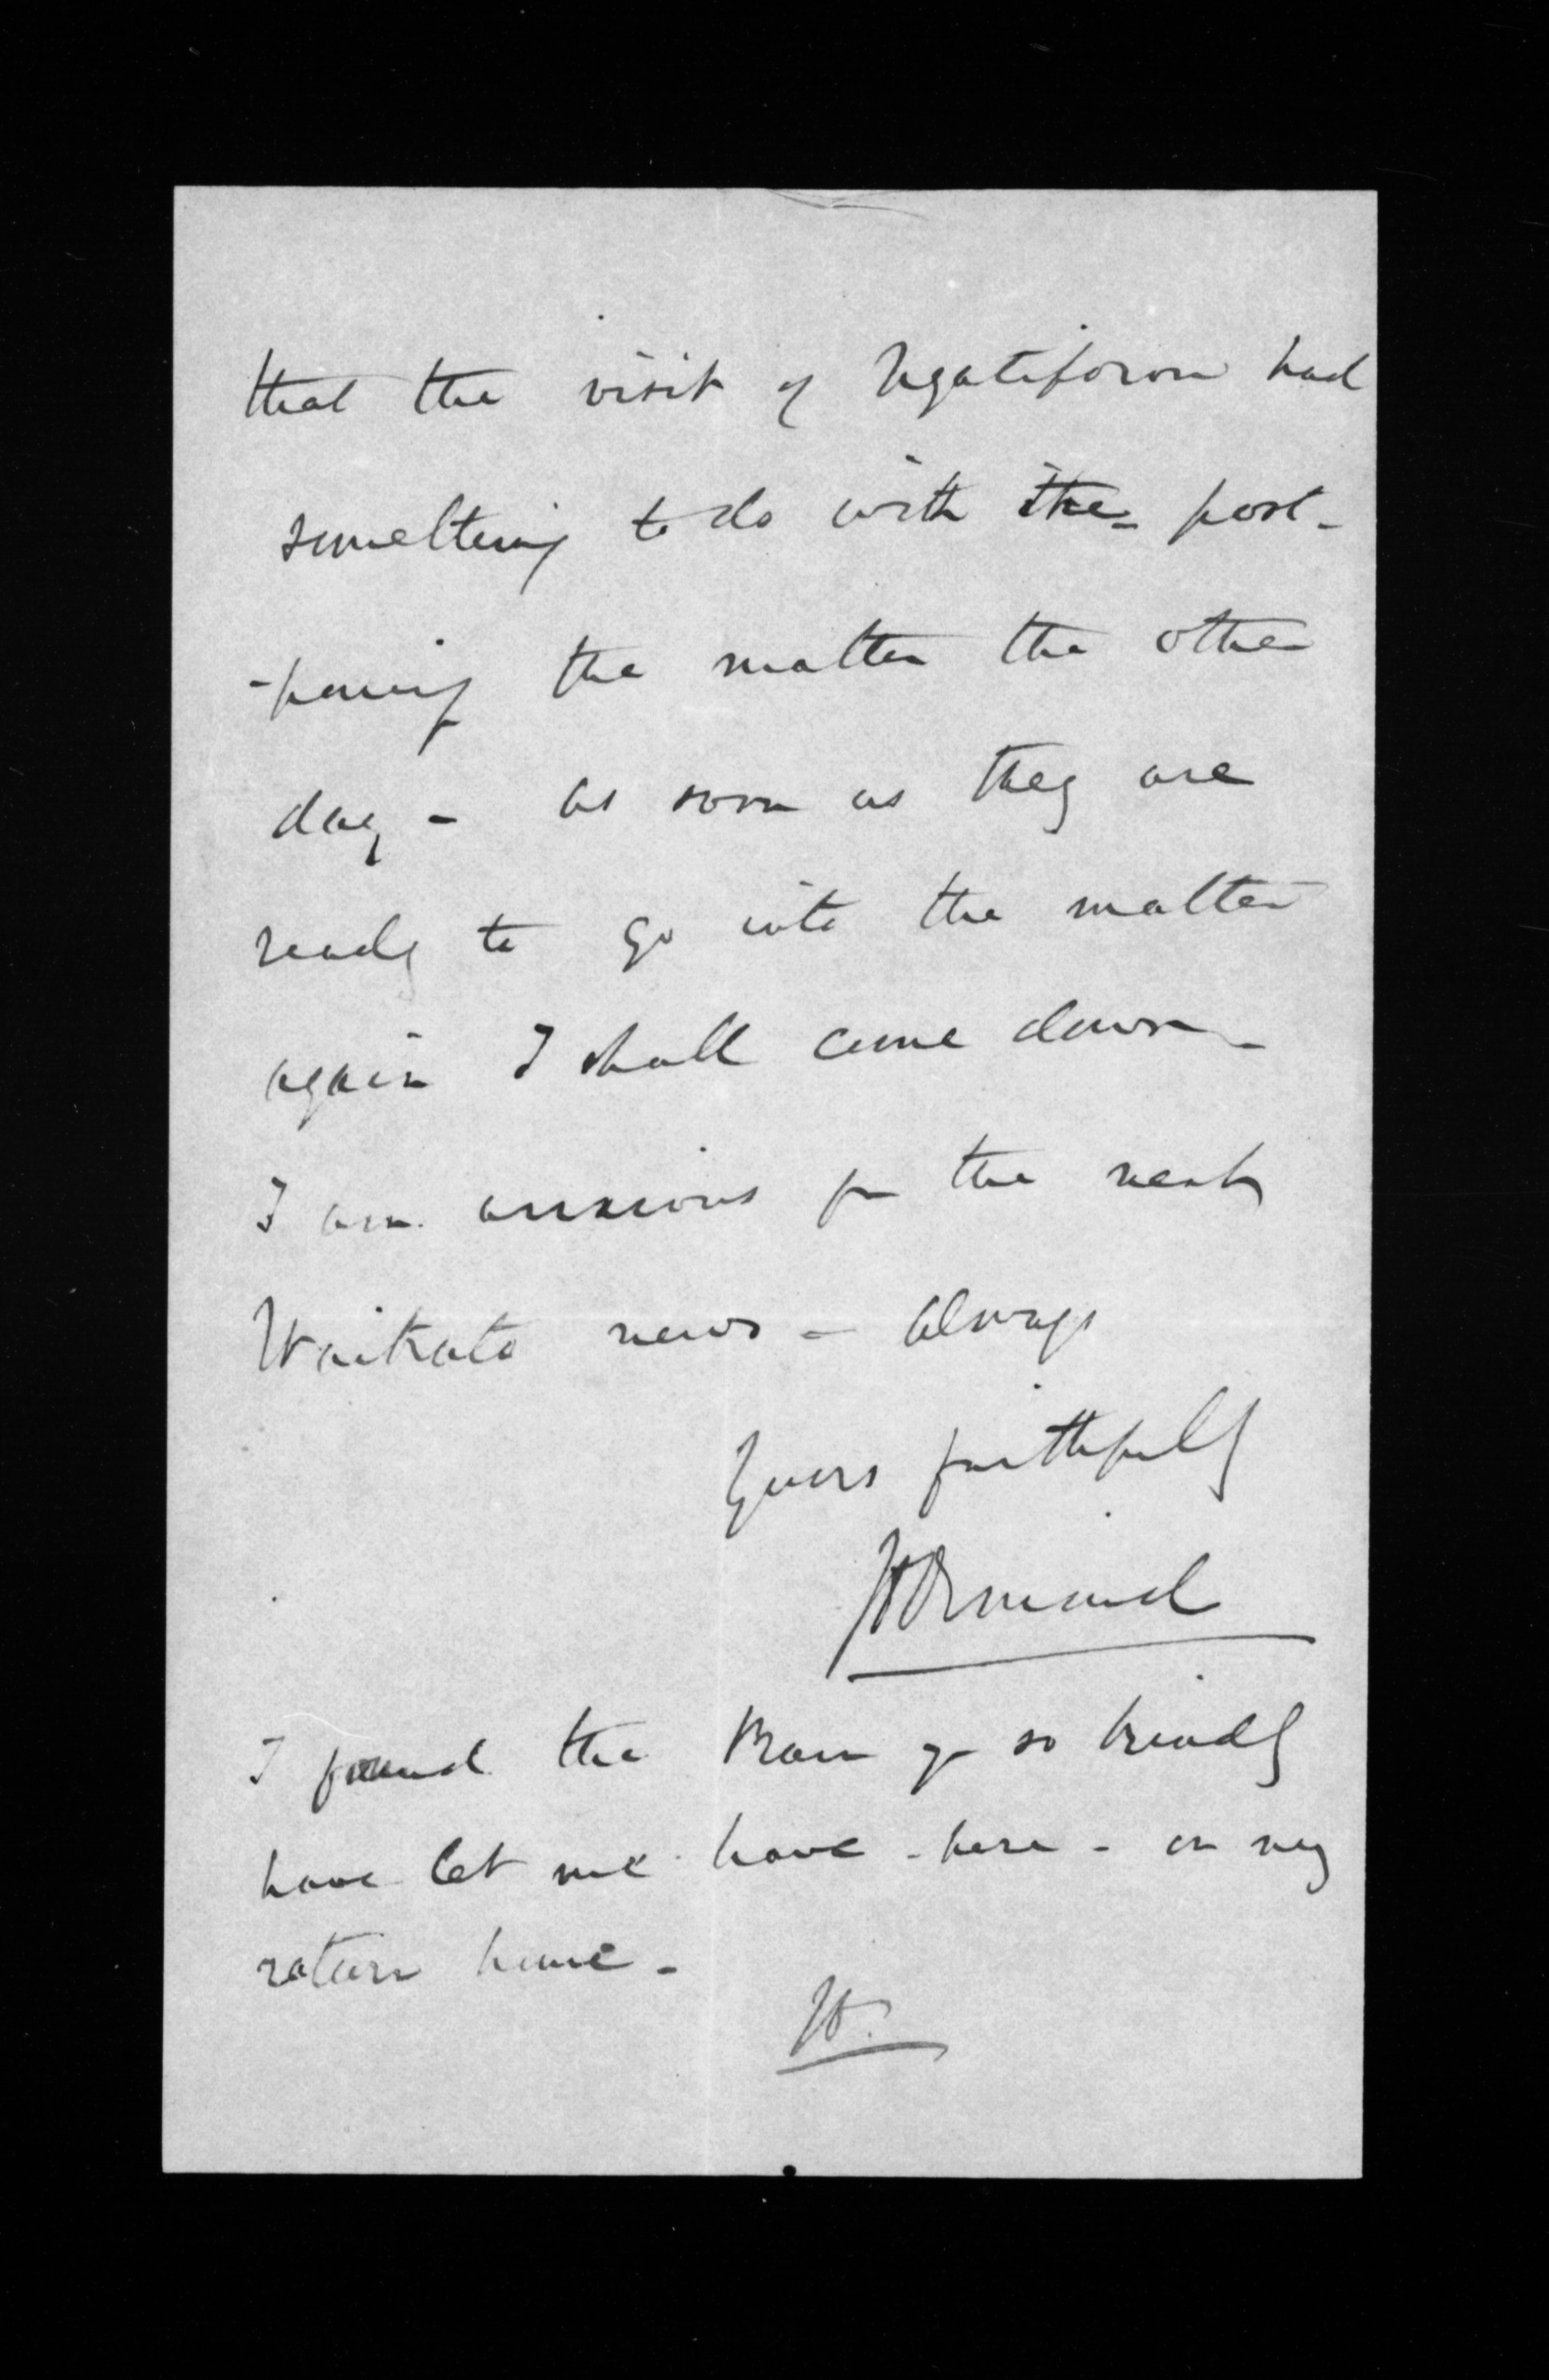 that the visit of Ngatiporou had
something to do with the post-
-poning the matter the other
day - as soon as they are
ready to go into the matter
again I shall come down -
I am anxious for the next
Waikato news - always
Yours faithfully
JD Ormond
I found the Ram yr so kindly
have let me have - here - on my
return home -
JD.